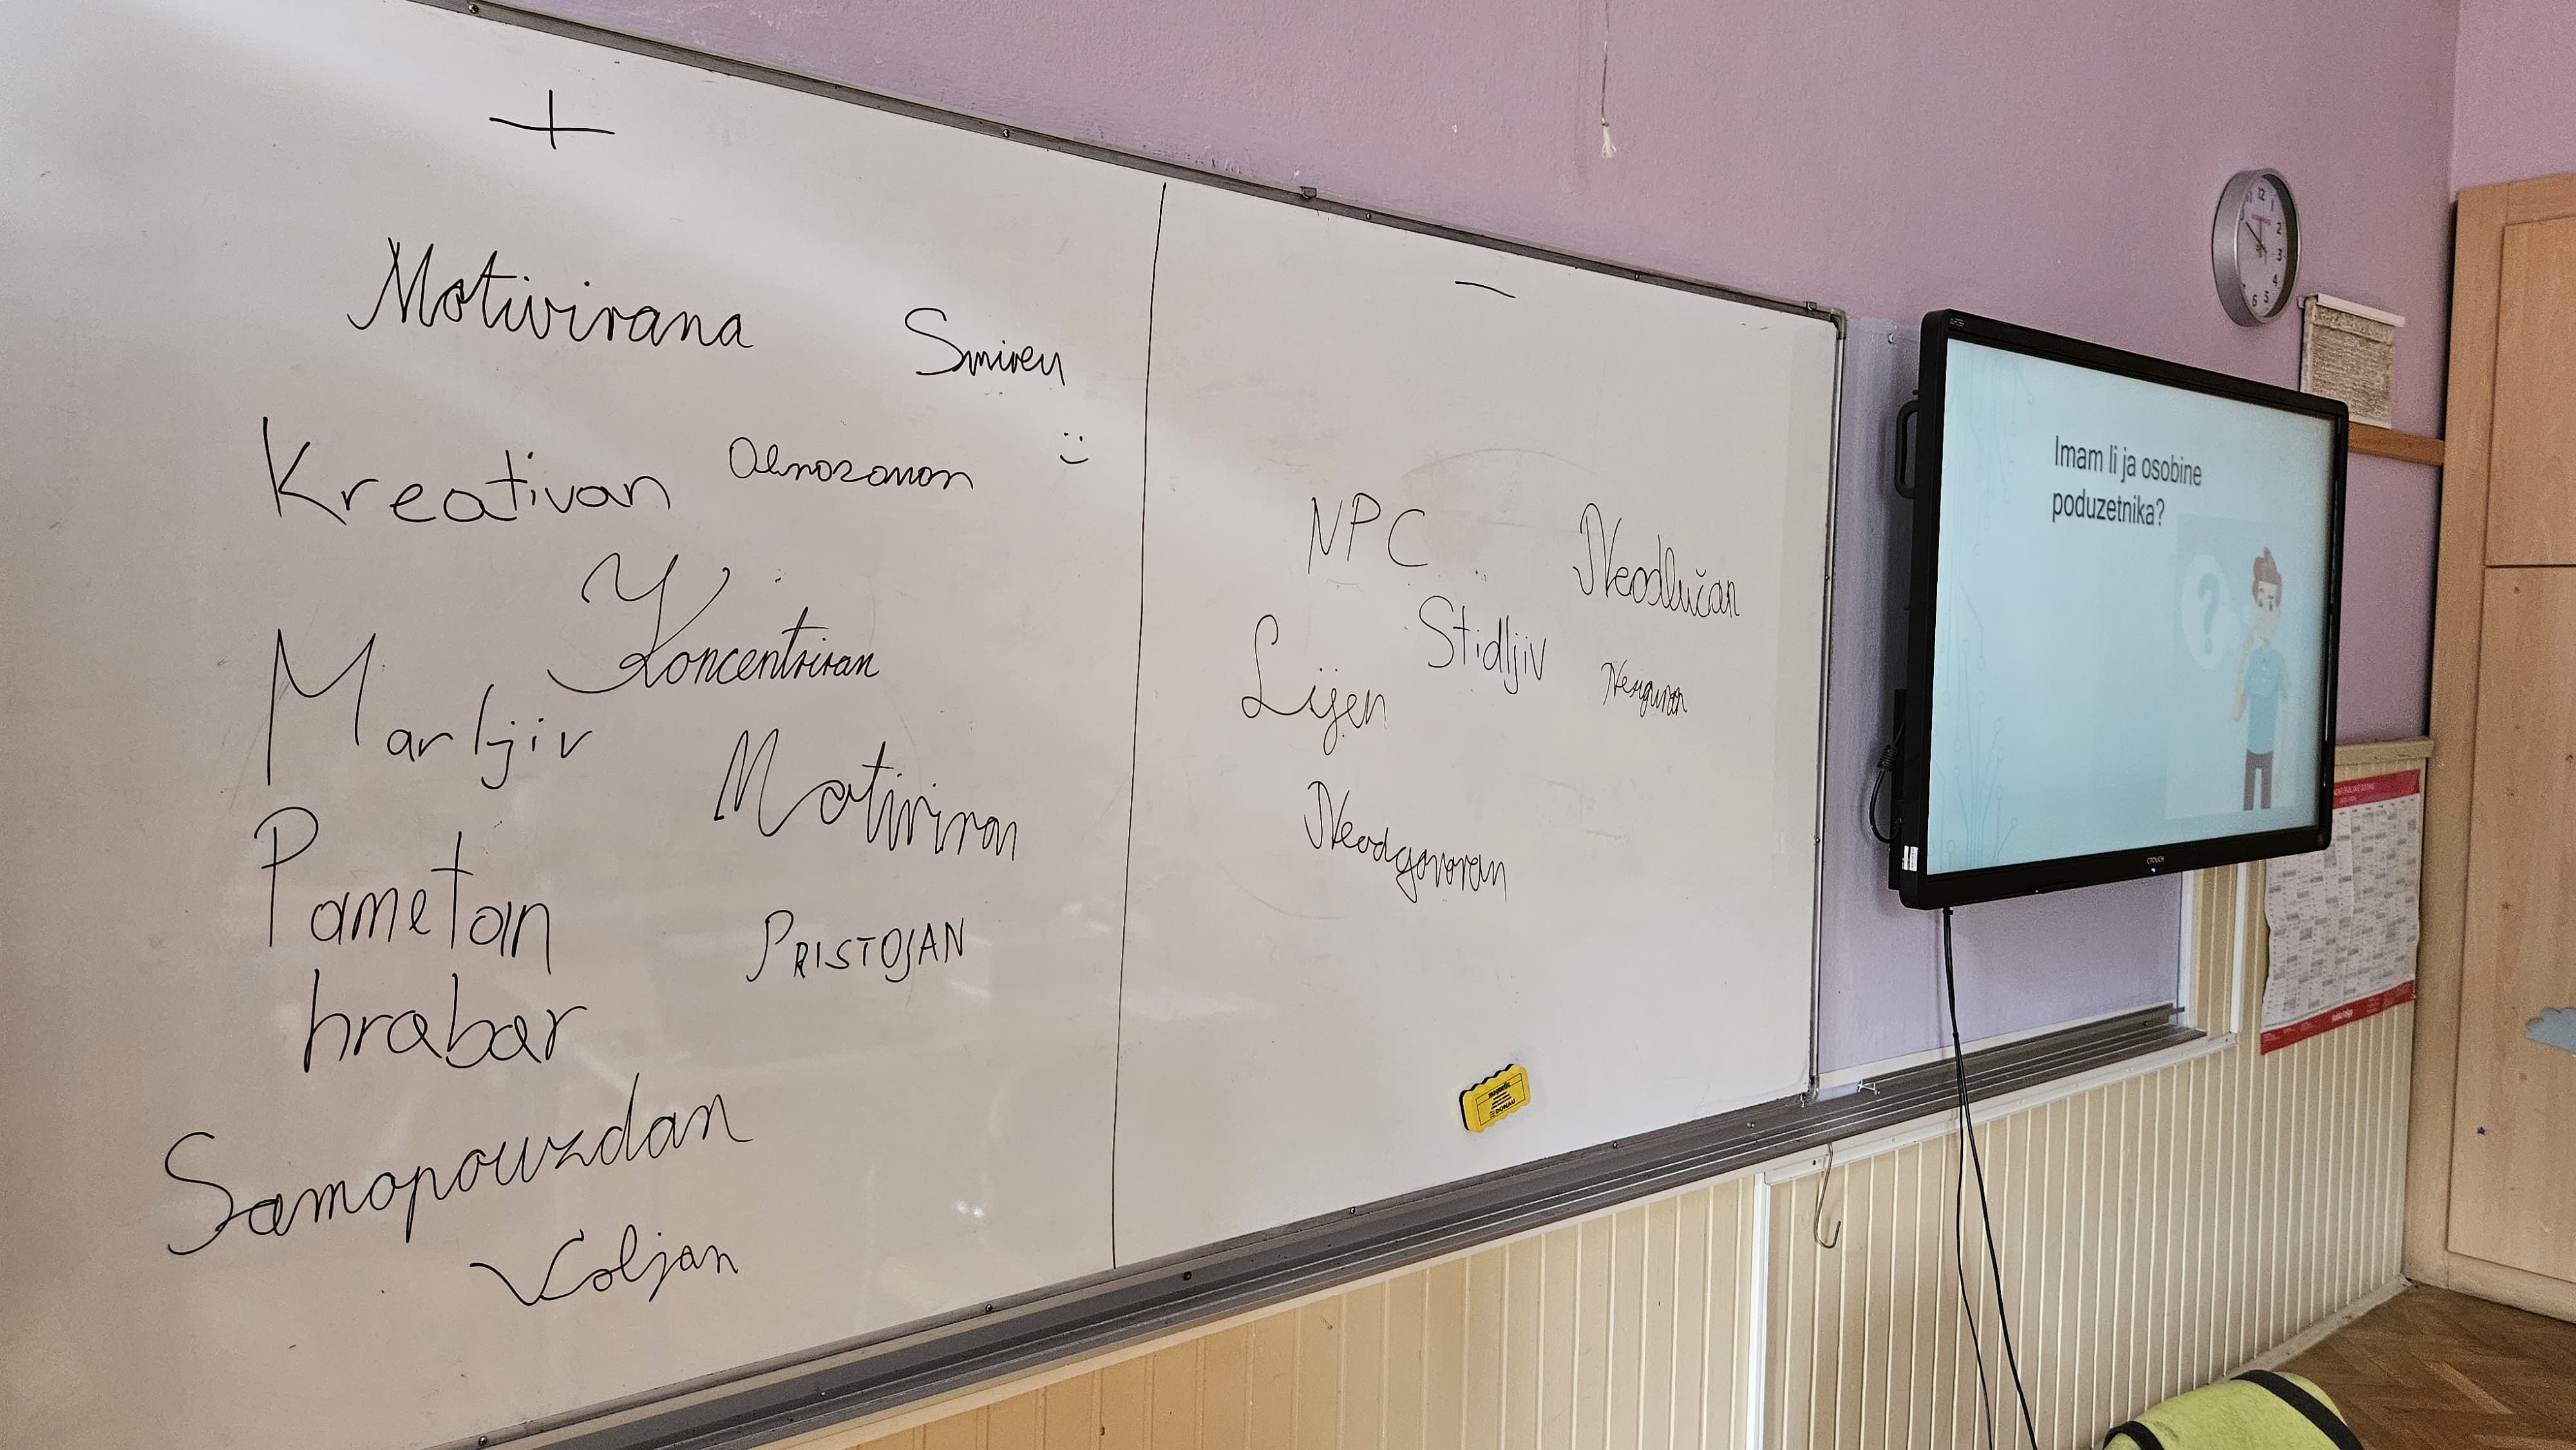 +
Motivirana
Smiren
Kreativan
:)
Koncentriran
Marljiv
Motiviran
Pametan
PRISTOJAN
hrabar
Samopouzdan
Voljan
–
NPC
Neodlučan
Stidljiv
Lijen
Neodgovoran
Imam li ja osobine
poduzetnika?
?
CTOUCH
magnetic
DONAU